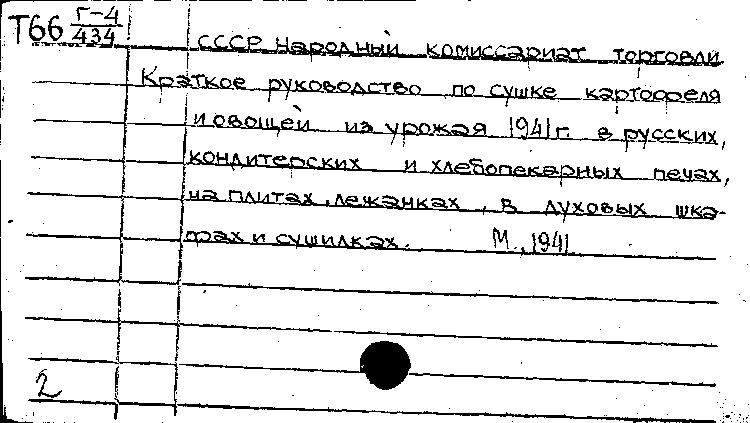 Т66 Г-4/434
СССР Народный комиссариат торговли
Краткое руководство по сушке картофеля
и овощей из урожая 1941 г. в русских,
кондитерских и хлебопекарных печах,
на плитах, лежанках, в духовых шка-
фах и сушилках. М., 1941
2